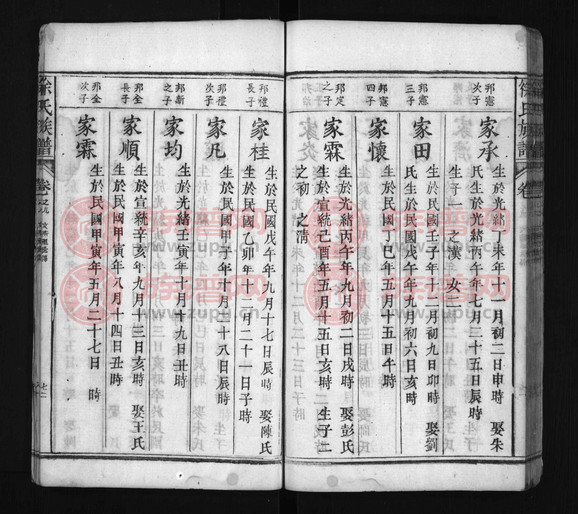 徐氏族譜
邦憲次子
家承
生於光緒丁未年十一月初二日申時 娶朱
氏生於光緒丙午年七月二十五日辰時
生子一 之漢 女二
邦憲三子
家田
生於民國壬子年十一月初九日卯時 娶劉
氏生於民國戊午年九月初六日亥時
邦憲四子
家懷
生於民國丁巳年五月十五日午時
邦定之子
家霖
生於光緒丙午年九月初二日戌時 娶彭氏
生於宣統己酉年五月十五日亥時 生子二
之初 之清
邦禮長子
家桂
生於民國戊午年九月十七日辰時 娶陳氏
生於民國乙卯年十二月二十一日子時
邦禮次子
家凡
生於民國甲子年十月十八日辰時
邦新之子
家均
生於光緒壬寅年十月十九日丑時
邦全長子
家順
生於宣統辛亥年九月十三日亥時 娶王氏
生於民國甲寅年八月十四日丑時
邦全次子
家霖
生於民國甲寅年五月二十七日 時
徐氏族譜
卷
族譜网
www.zupu.cn